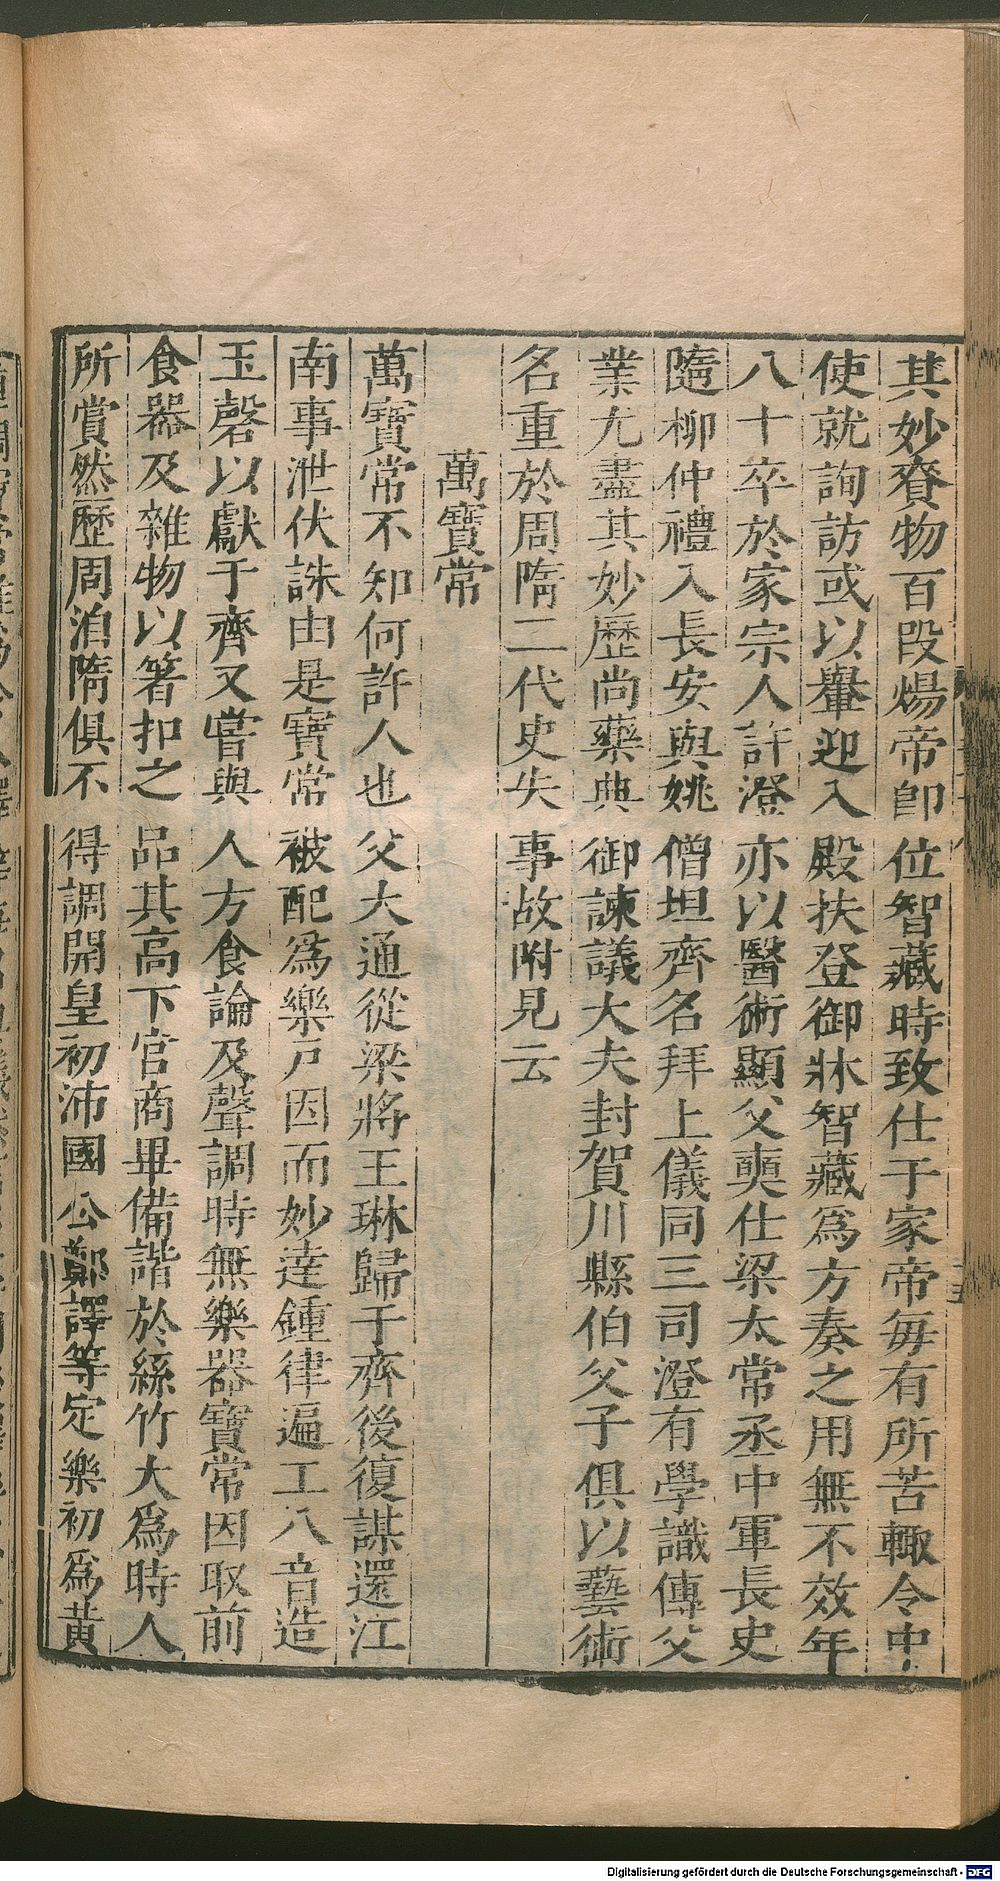 其妙賚物百段煬帝卽位智藏時致仕于家帝每有所苦輙令中
使就詢訪或以轝迎入殿扶登御牀智藏爲方奏之用無不效年
八十卒於家宗人許澄亦以醫術顯父奭仕梁太常丞中軍長史
隨柳仲禮入長安與姚僧坦齊名拜上儀同三司澄有學識傳父
業尤盡其妙歷尚藥典御諫議大夫封賀川縣伯父子俱以藝術
名重於周隋二代史失事故附見云
萬寶常
萬寶常不知何許人也父大通從梁將王琳歸于齊後復謀還江
南事泄伏誅由是寶常被配爲樂戸因而妙達鍾律遍工八音造
玉磬以獻于齊又嘗與人方食論及聲調時無樂器寶常因取前
食器及雜物以箸扣之品其高下宮商畢備諧於絲竹大爲時人
所賞然歷周洎隋俱不得調開皇初沛國公鄭譯等定樂初爲黃
Digitalisierung gefördert durch die Deutsche Forschungsgemeinschaft - DFG